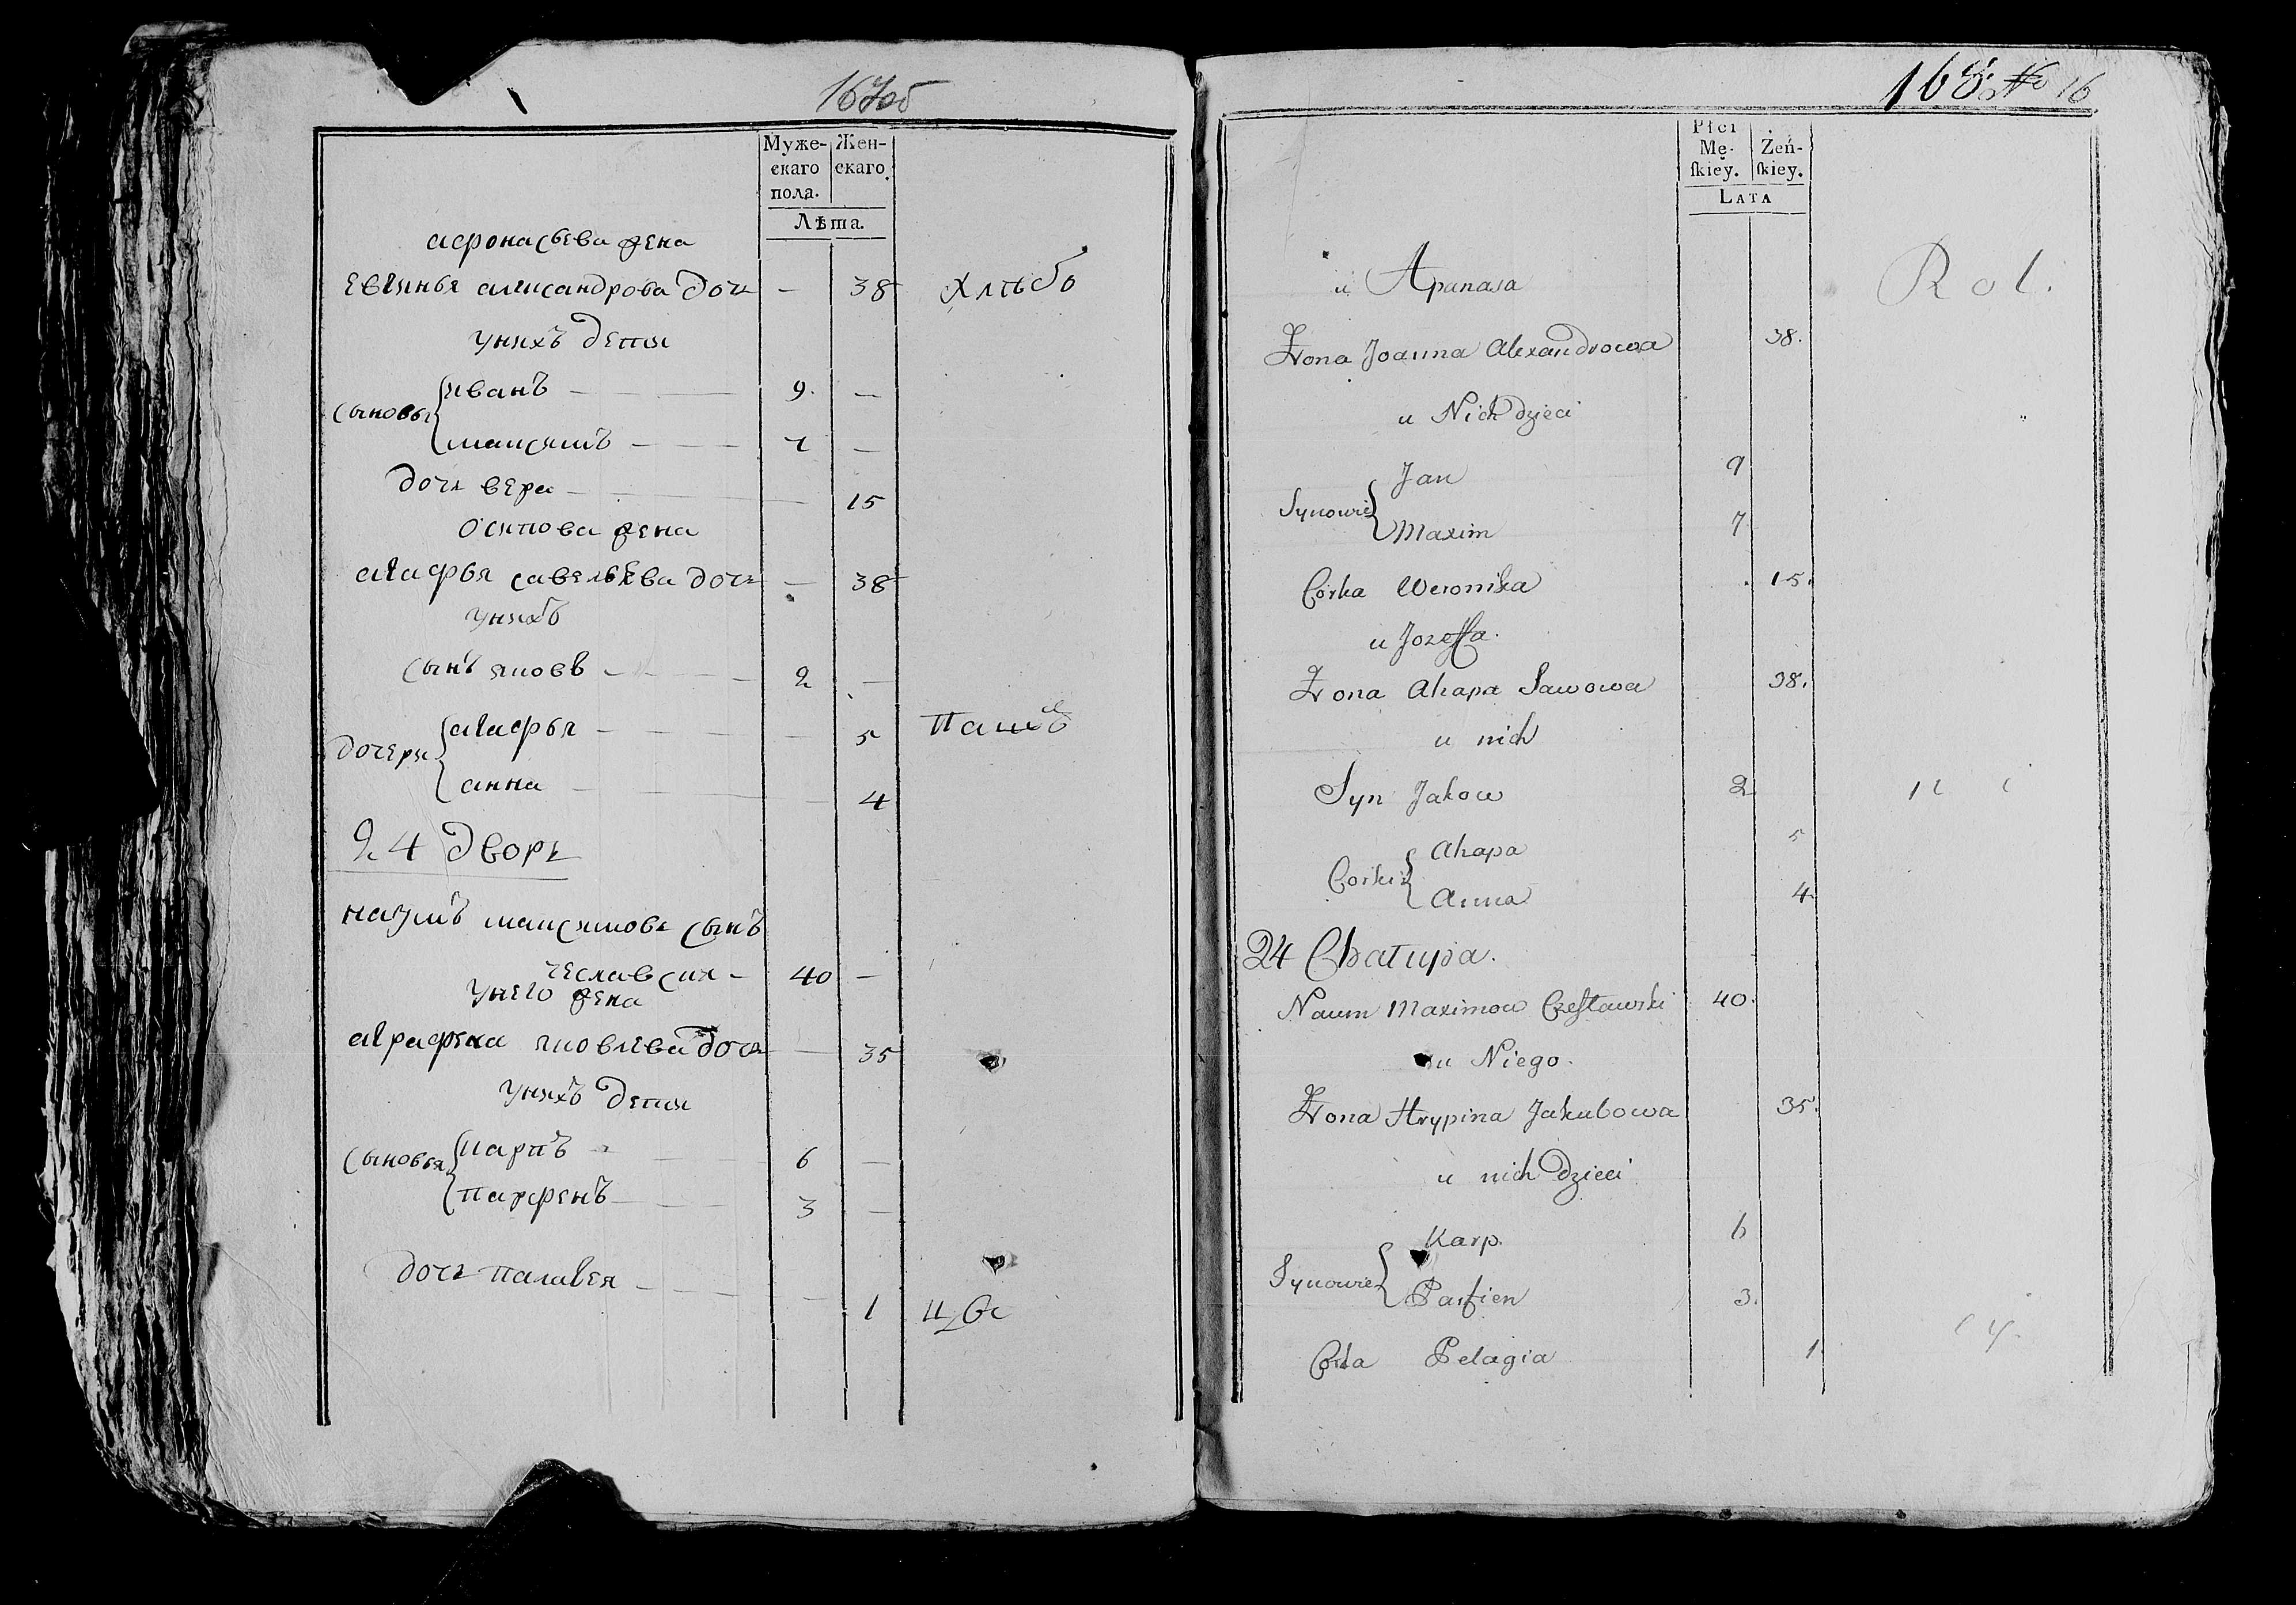 167об
Муже-
скаго
пола.
Жен-
скаго.
Лѣта.
афонасьева жена
евгинья александрова дочь — 38 хлѣбо
унихъ дети
сыновья иванъ — 9. —
максимъ — 7 —
дочь вера — 15
осипова жена
агафья савельева дочь — 38
унихъ
сынъ яковъ — 2 —
дочери агафья — 5
анна — 4
24 дворъ
наумъ максимовъ сынъ
чеславски — 40 —
унего жена
аграфена яковлева дочь — 35
унихъ дети
сыновья карпъ — 6 —
парфенъ — 3 —
дочь палагея — 1
168 16
Płci
Mę-
skiey.
Żeń-
skiey.
LATA
u Apanasa Rol.
Żona Joanna Alexandrowa 38.
u Nich dzieci
Synowie Jan 9
Maxim 7
Corka Weronika 15.
u Jozeffa.
Żona Ahapa Sawowa 38.
u nich
Syn Jakow 2
Corki Ahapa 5
Anna 4
24 Chatupa.
Naum Maximow Czesławski 40.
u Niego.
Żona Hrypina Jakubowa 35.
u nich dzieci
Synowie Karp. 6
Parfien 3.
Corka Pelagia 1